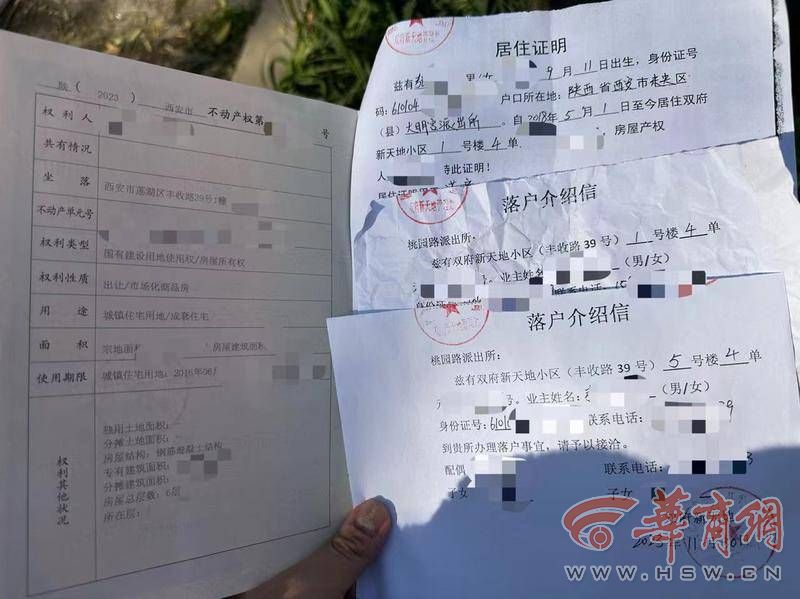 陕（ 2023 ） 西安市 不动产权第 号
权利人
共有情况
坐落 西安市莲湖区丰收路39号1幢
不动产单元号
权利类型 国有建设用地使用权/房屋所有权
权利性质 出让/市场化商品房
用途 城镇住宅用地/成套住宅
面积 宗地面积 房屋建筑面积
使用期限 城镇住宅用地：2016年06月
权利其他状况
独用土地面积：--
分摊土地面积：--
房屋结构：钢筋混凝土结构
专有建筑面积：
分摊建筑面积：
房屋总层数：6层
所在层：
居住证明
兹有 男/女 9 月 11 日出生，身份证号
码：61010 户口所在地：陕西省西安市未央区
（县）大明宫派出所。自2018年 5 月 1 日至今居住双府
新天地小区 1 号楼 4 单 房屋产权
人 特此证明！
落户介绍信
桃园路派出所：
兹有双府新天地小区（丰收路 39 号） 1 号楼 4 单
业主姓名 （男/女）
联系电话：
落户介绍信
桃园路派出所：
兹有双府新天地小区（丰收路 39 号） 5 号楼 4 单
业主姓名： （男/女）
身份证号：6101 联系电话：
到贵所办理落户事宜，请予以接洽。
配偶 联系电话：
子女 子女
2023年11月
华商网
WWW.HSW.CN